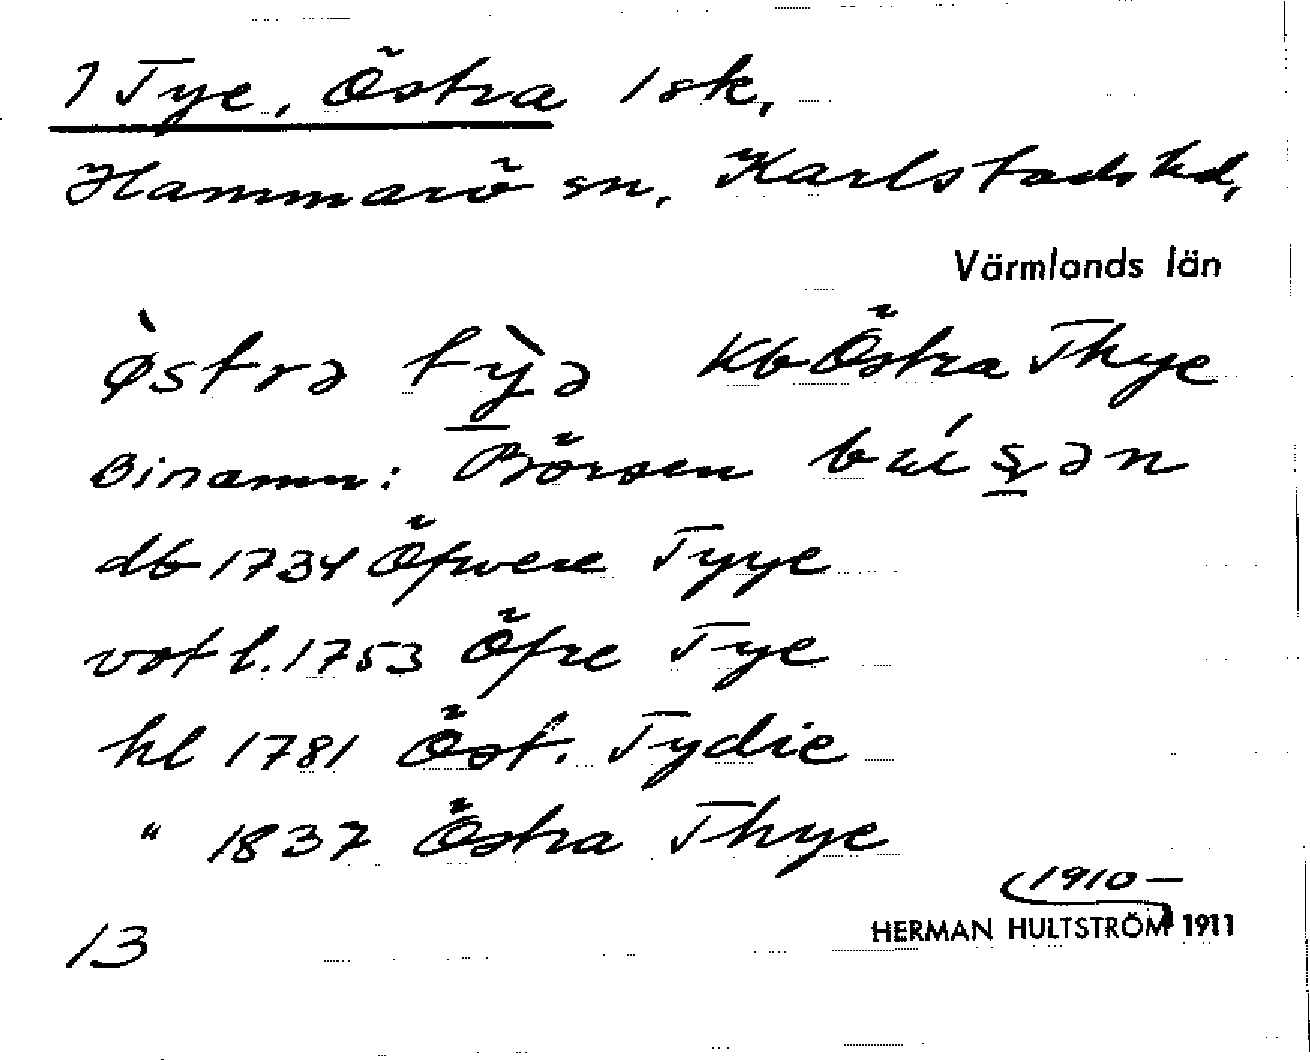 1 Tye, Östra 1 sk,
Hammarö sn, Karlstads hd,
Värmlands län
ø̀strə tỳ̠ə Kb Östra Thye
Binamn: Börsen
db 1734 Öfwere Tyye
votl. 1753 Öfre Tye
hl 1781 Öst. Tydie
" 1837 Östra Thye
1910–
HERMAN HULTSTRÖM 1911
13